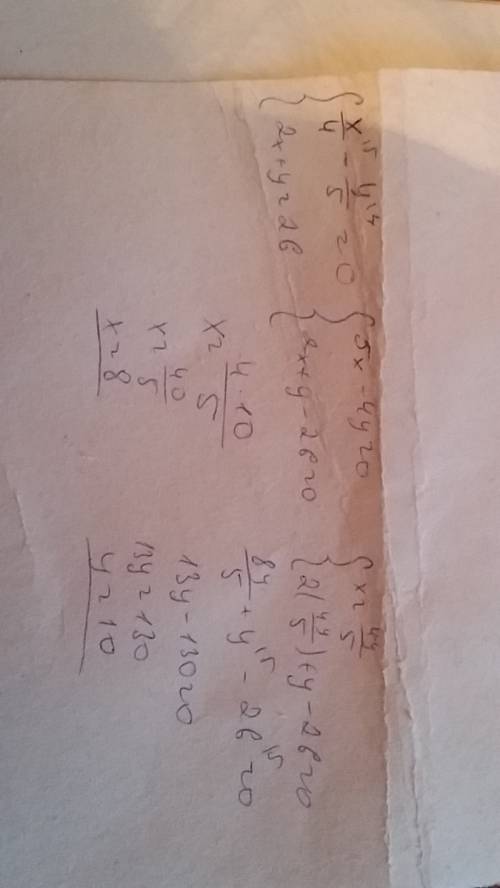 { x/4 |5 - y/5 |4 = 0
{ 2x+y=26
{ 5x-4y=0
{ 2x+y-26=0
{ x= 4y/5
{ 2(4y/5)+y-26=0
8y/5 + y |5 - 26 |5 =0
13y-130=0
13y=130
y=10
x= 4·10/5
x= 40/5
x=8